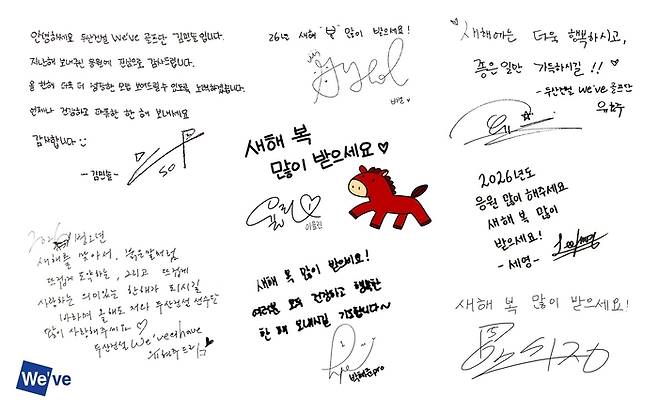 안녕하세요 두산건설 We've 골프단 김민솔입니다.
지난해 보내주신 응원에 진심으로 감사드립니다.
올 한해 더욱 더 성장한 모습 보여드릴 수 있도록 노력하겠습니다.
언제나 건강하고 따뜻한 한 해 보내세요
감사합니다
-김민솔-
26년 새해 "복" 많이 받으세요!
새해에는 더욱 행복하시고,
좋은일만 가득하시길!! ♡
-두산건설 we've 골프단
유효주
새해 복
많이 받으세요♡
이율린
2026년도
응원 많이 해주세요
새해 복 많이
받으세요!
-세영-
2026
새해를 맞아서, 붉은말처럼
뜨겁게 도약하는, 그리고 뜨겁게
사랑하는 의미있는 한해가 되시길
바라며 올해도 저와 두산건설 선수단
많이 사랑해주세요 ♡
두산건설 We've
유현주 드림
새해 복 많이 받으세요!
여러분 모두 건강하고 행복한
한 해 보내시길 기도합니다~
박혜준pro
새해 복 많이 받으세요!
We've